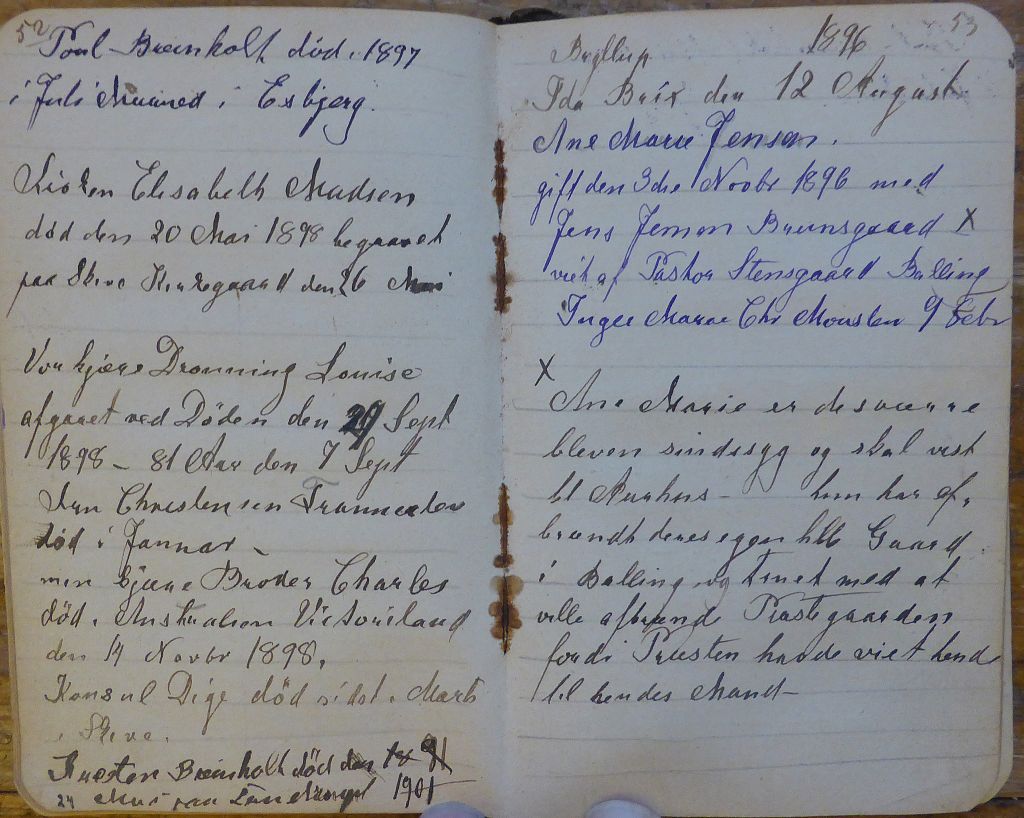 52
Poul Breinholt död i 1897
i Juli Maaned i Esbjerg.
Elisabeth Madsen
död den 20 Mai 1898 begravet
paa Skive Kirkegaard den 26 Mai
Vor kjære Dronning Louise
afgaaet ved Döden den 29 Sept
1898 - 81 Aar den 7 Sept
Christensen
död i Januar
min kjære Broder Charles
död i Australien Victoriland
den 14 Novbr 1898.
Konsul Dige död sidst i Marts
i Skive.
Breinholt död den
24 paa 1901
53
Bryllup 1896
Ida Brix den 12 August
Ane Marie Jensen.
gift den 3die Novbr 1896 med
Jens Jensen Bruunsgaard X
viet af Pastor Stensgaard Balling
Inger Marie Chr Mousten 9 Febr
X
Ane Marie er desværre
bleven sindssyg og skal vist
til Aarhus - hun har af,
brændt deres egen lille Gaard
i Balling og truet med at
ville afbrænde Præstegaarden
fordi Præsten havde viet hende
til hendes Mand -